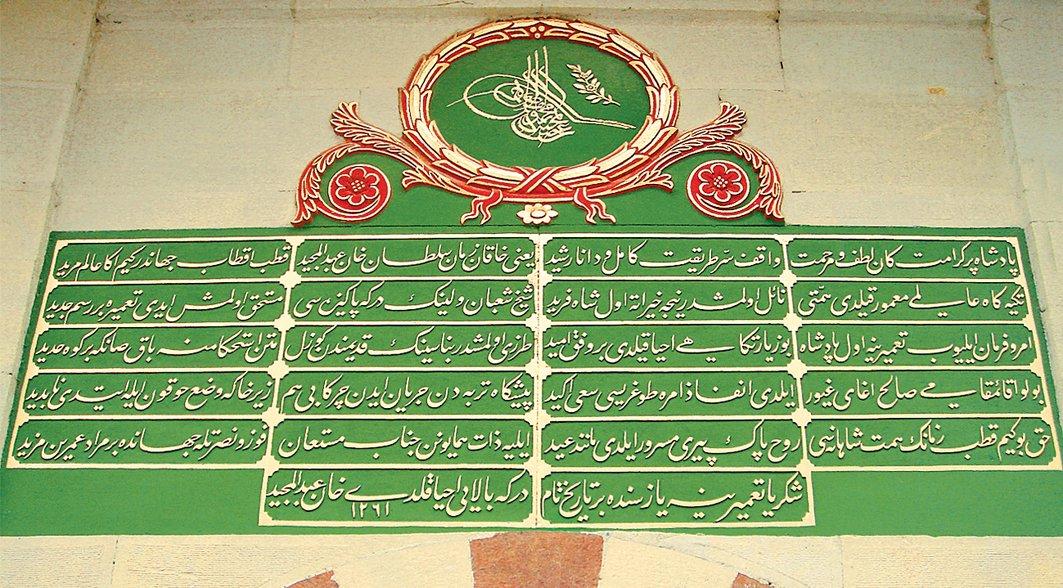 پادشاه پر کرامت کان لطف و مرحمت واقف سر طریقت کامل و دانا رشید یعنی خاقان زمان سلطان خان عبدالمجید قطب اقطاب جهاندر کیم اکا عالم مرید
تکیه کاه عالمی معمور قیلدی همتی نائل اولمشدر نیجه خیراته اول شاه فرید شیخ شعبان ولینک درکه پاکیزه سی مستحق اولمش ایدی تعمیره بر رسم جدید
امر و فرمان ایلیوب تعمیرینه اول پادشاه بو زیارتکاهی احیا قیلدی بر وفق امید طرزی اولمشدر بناسینک کوزل متن استحکامنه باق صانکه بر کوه حدید
بولوا قائمقامی صالح اغای غیور ایلدی انفاذ امره طوغریسی سعی اکید پیشکاه تربه دن جریان ایدن چرکابی هم زیر خاکه وضع ایله ایتدی نابدید
حق بو کیم قطب زمانک همت شاهانه سی روح پاک پیری مسرور ایلدی مانند عید ایلیه ذات همایونن جناب مستعان فوز و نصرتله جهانده بر مراد عمرین مزید
شکریا تعمیرینه یازسنده بر تاریخ تام درکه بالایی احیا قلدی خان عبدالمجید
١٢٦١